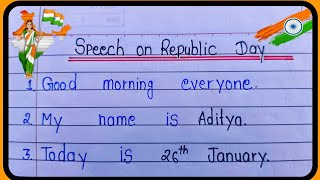 Speech on Republic Day
1. Good morning everyone.
2. My name is Aditya.
3. Today is 26th January.